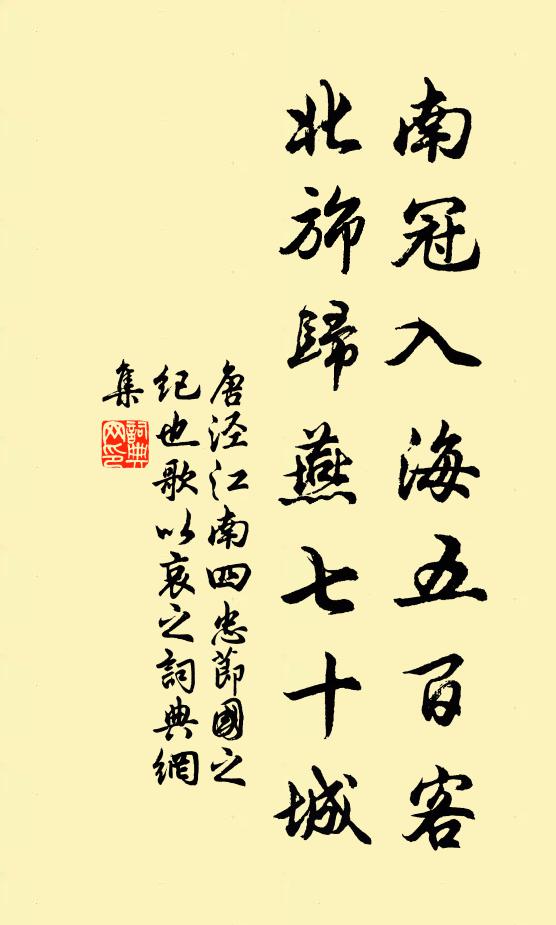 南冠入海五百客
北旆歸燕七十城
唐涇江南四忠節國之
紀也歌以哀之詞典網
集
詞典
网印